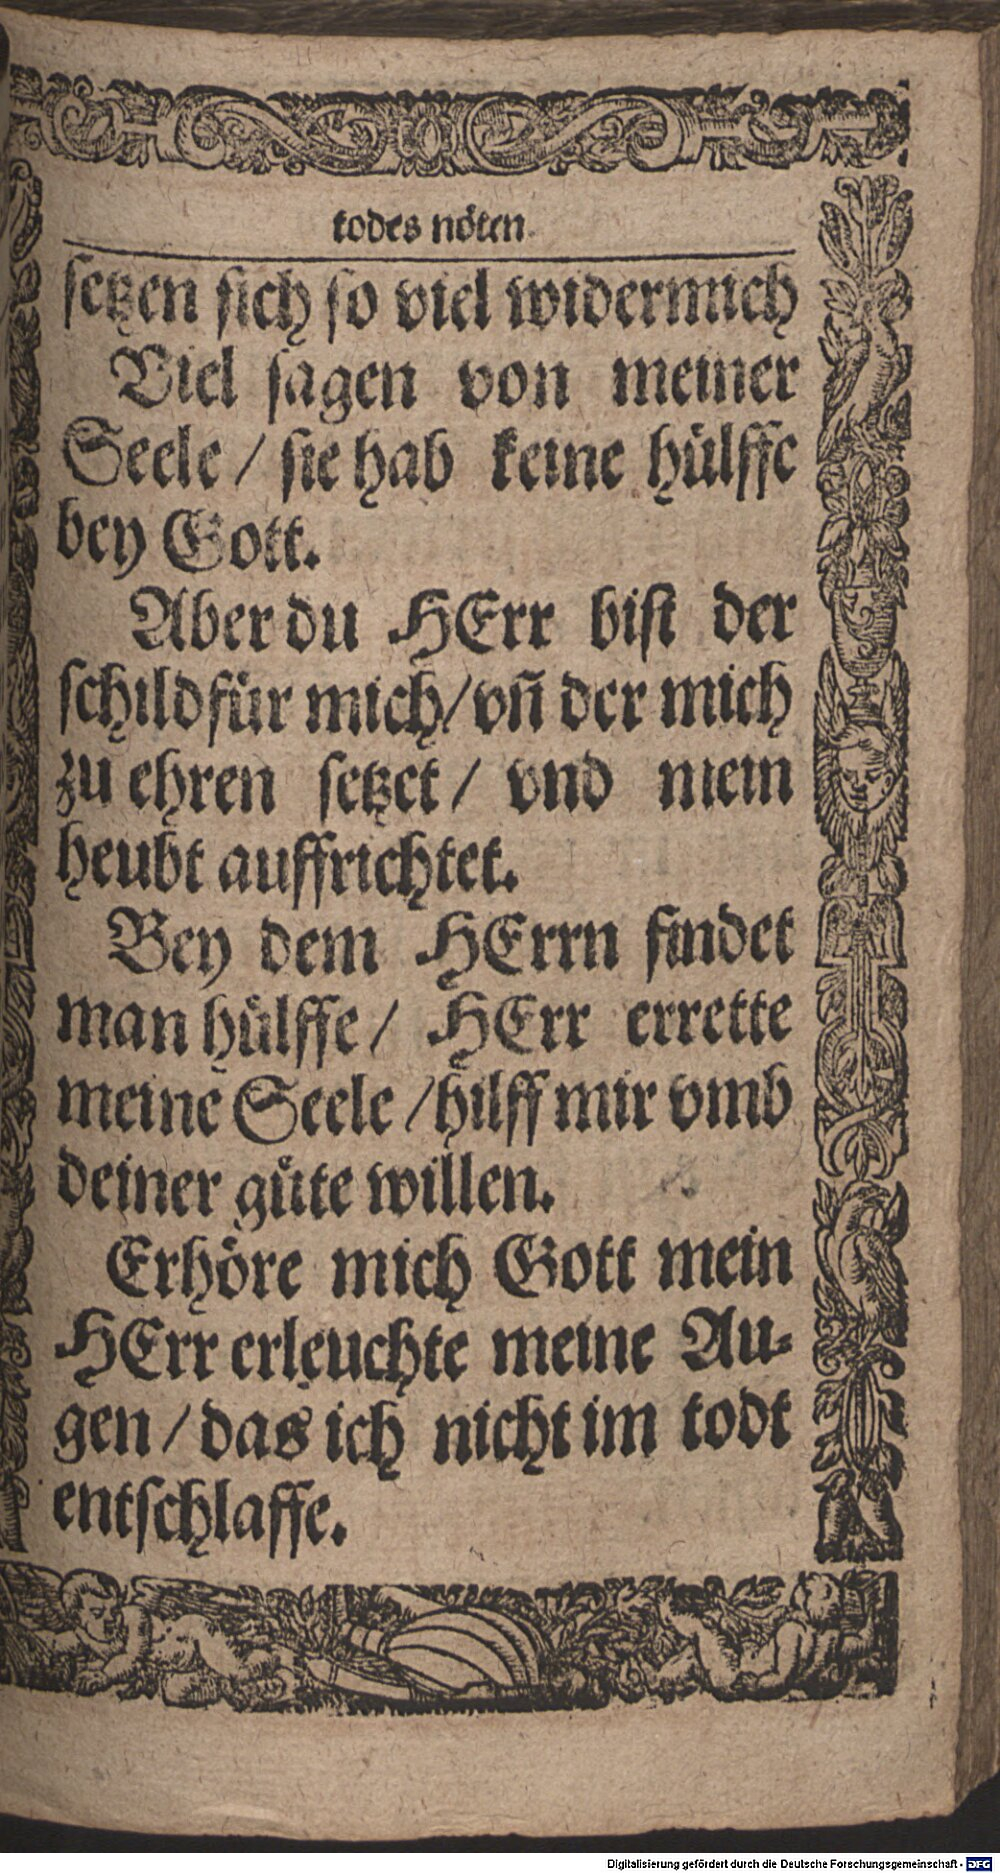 todes nöten.
setzen sich so viel widermich
Viel sagen von meiner
Seele / sie hab keine hülffe
bey Gott.
Aber du HErr bist der
schild für mich/ vñ der mich
zu ehren setzet / vnd mein
heubt auffrichtet.
Bey dem HErrn findet
man hülffe / HErr errette
meine Seele / hilff mir vmb
deiner güte willen.
Erhöre mich Gott mein
HErr erleuchte meine Au-
gen / das ich nicht im todt
entschlaffe.
Digitalisierung gefördert durch die Deutsche Forschungsgemeinschaft - DFG